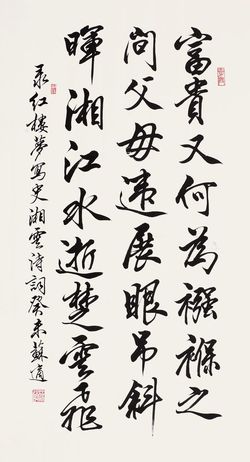 富貴又何為襁褓之
間父母違展眼吊斜
暉湘江水逝楚雲飛
录红樓夢寫史湘雲诗詞癸未蘇適